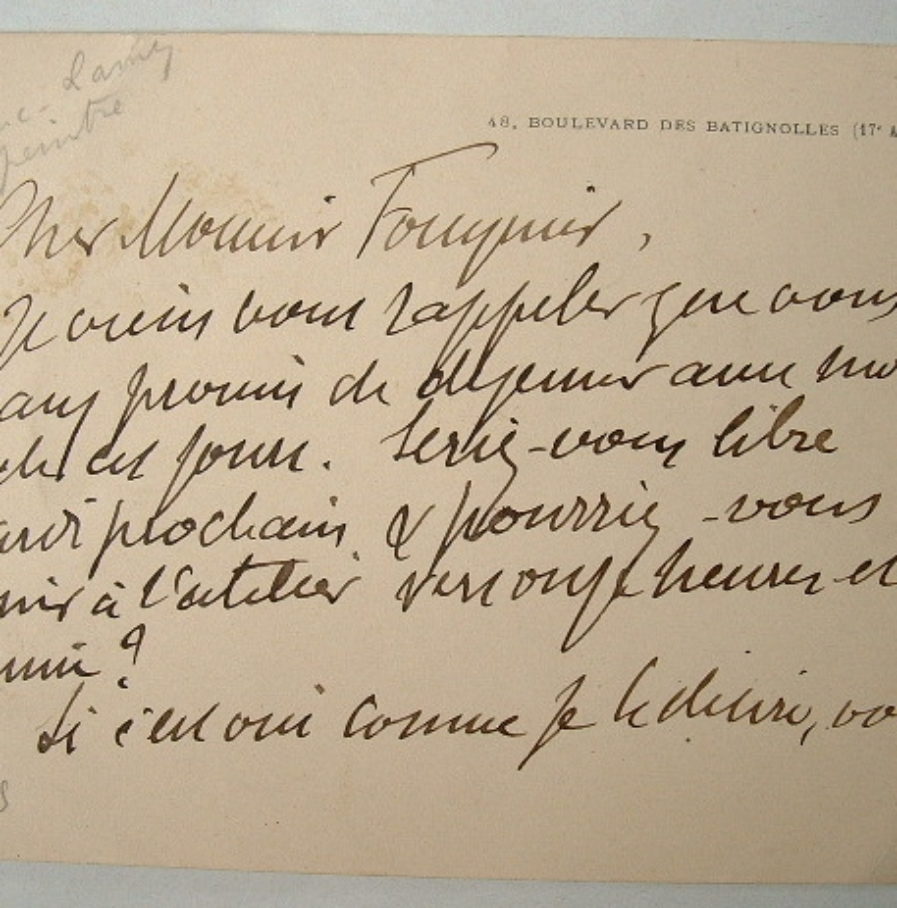 c-Lamy
peintre
48, BOULEVARD DES BATIGNOLLES (17e A
Cher Monsieur Fouqunir,
Je viens vous rappeler que vous
avez promis de dejeuner avec mo
de ces jours. Seriez-vous libre
ardi prochain & pourriez-vous
nir à l'atelier vers onze heures et
mie?
Si c'est oui comme je le désire, vo